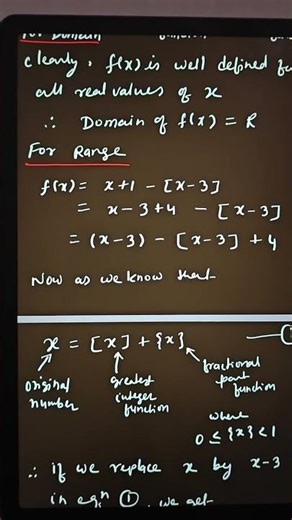 For Domain
clearly, f(x) is well defined for
all real values of x
∴ Domain of f(x) = R
For Range
f(x) = x+1 - [x-3]
= x-3+4 - [x-3]
= (x-3) - [x-3] + 4
Now as we know that
x = [x] + {x} — ①
original number
greatest integer function
fractional part function
where
0 ≤ {x} < 1
∴ if we replace x by x-3
in eqn ①, we get